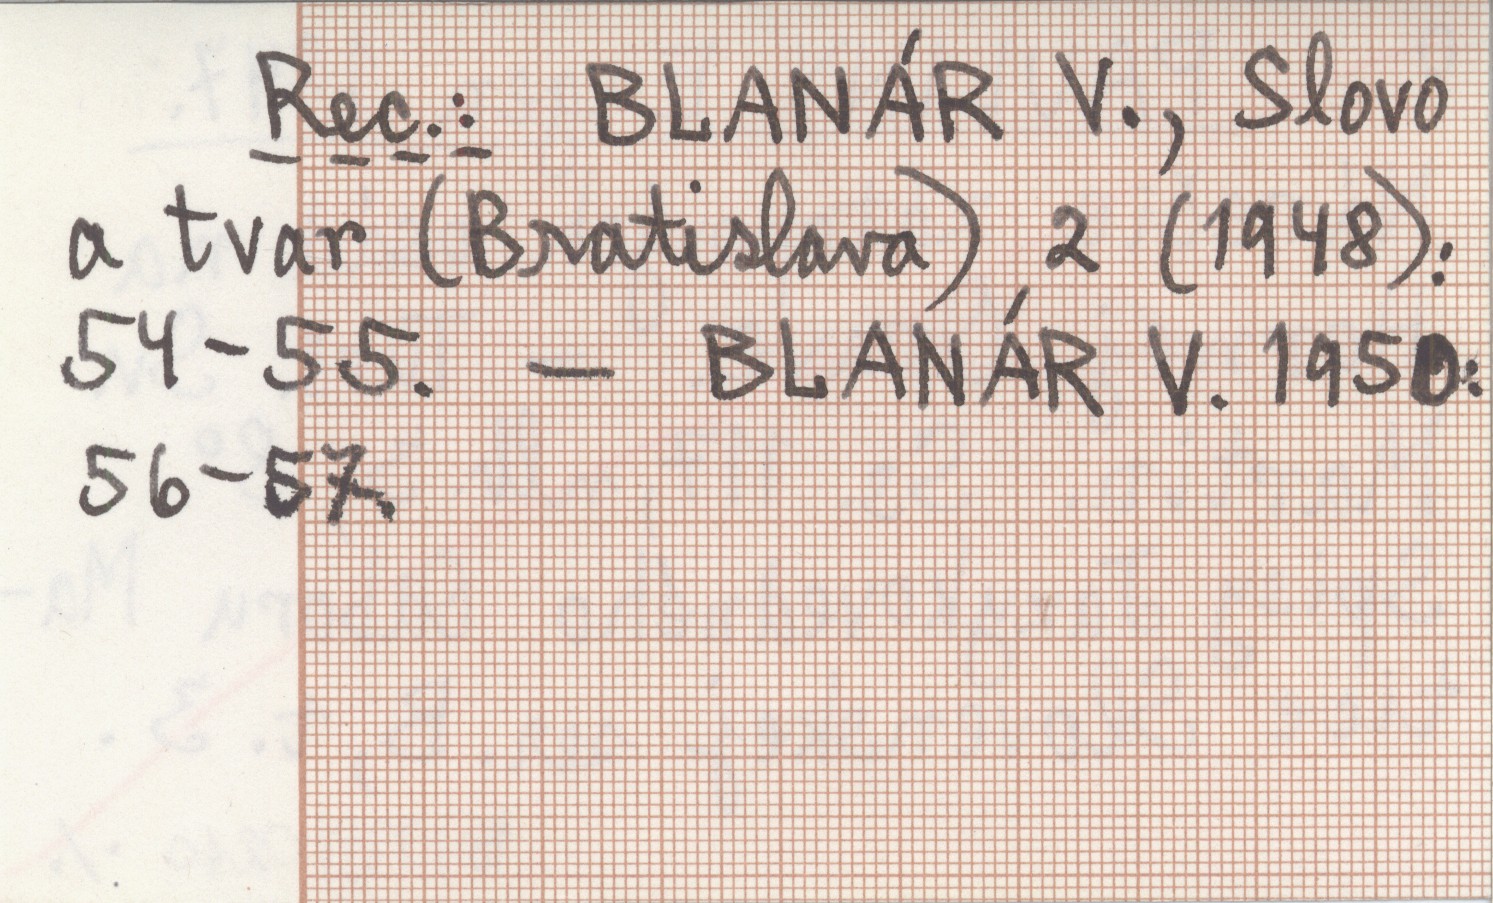 Rec.: BLANÁR V., Slovo
a tvar (Bratislava) 2 (1948):
54-55. — BLANÁR V. 1950:
56-57.